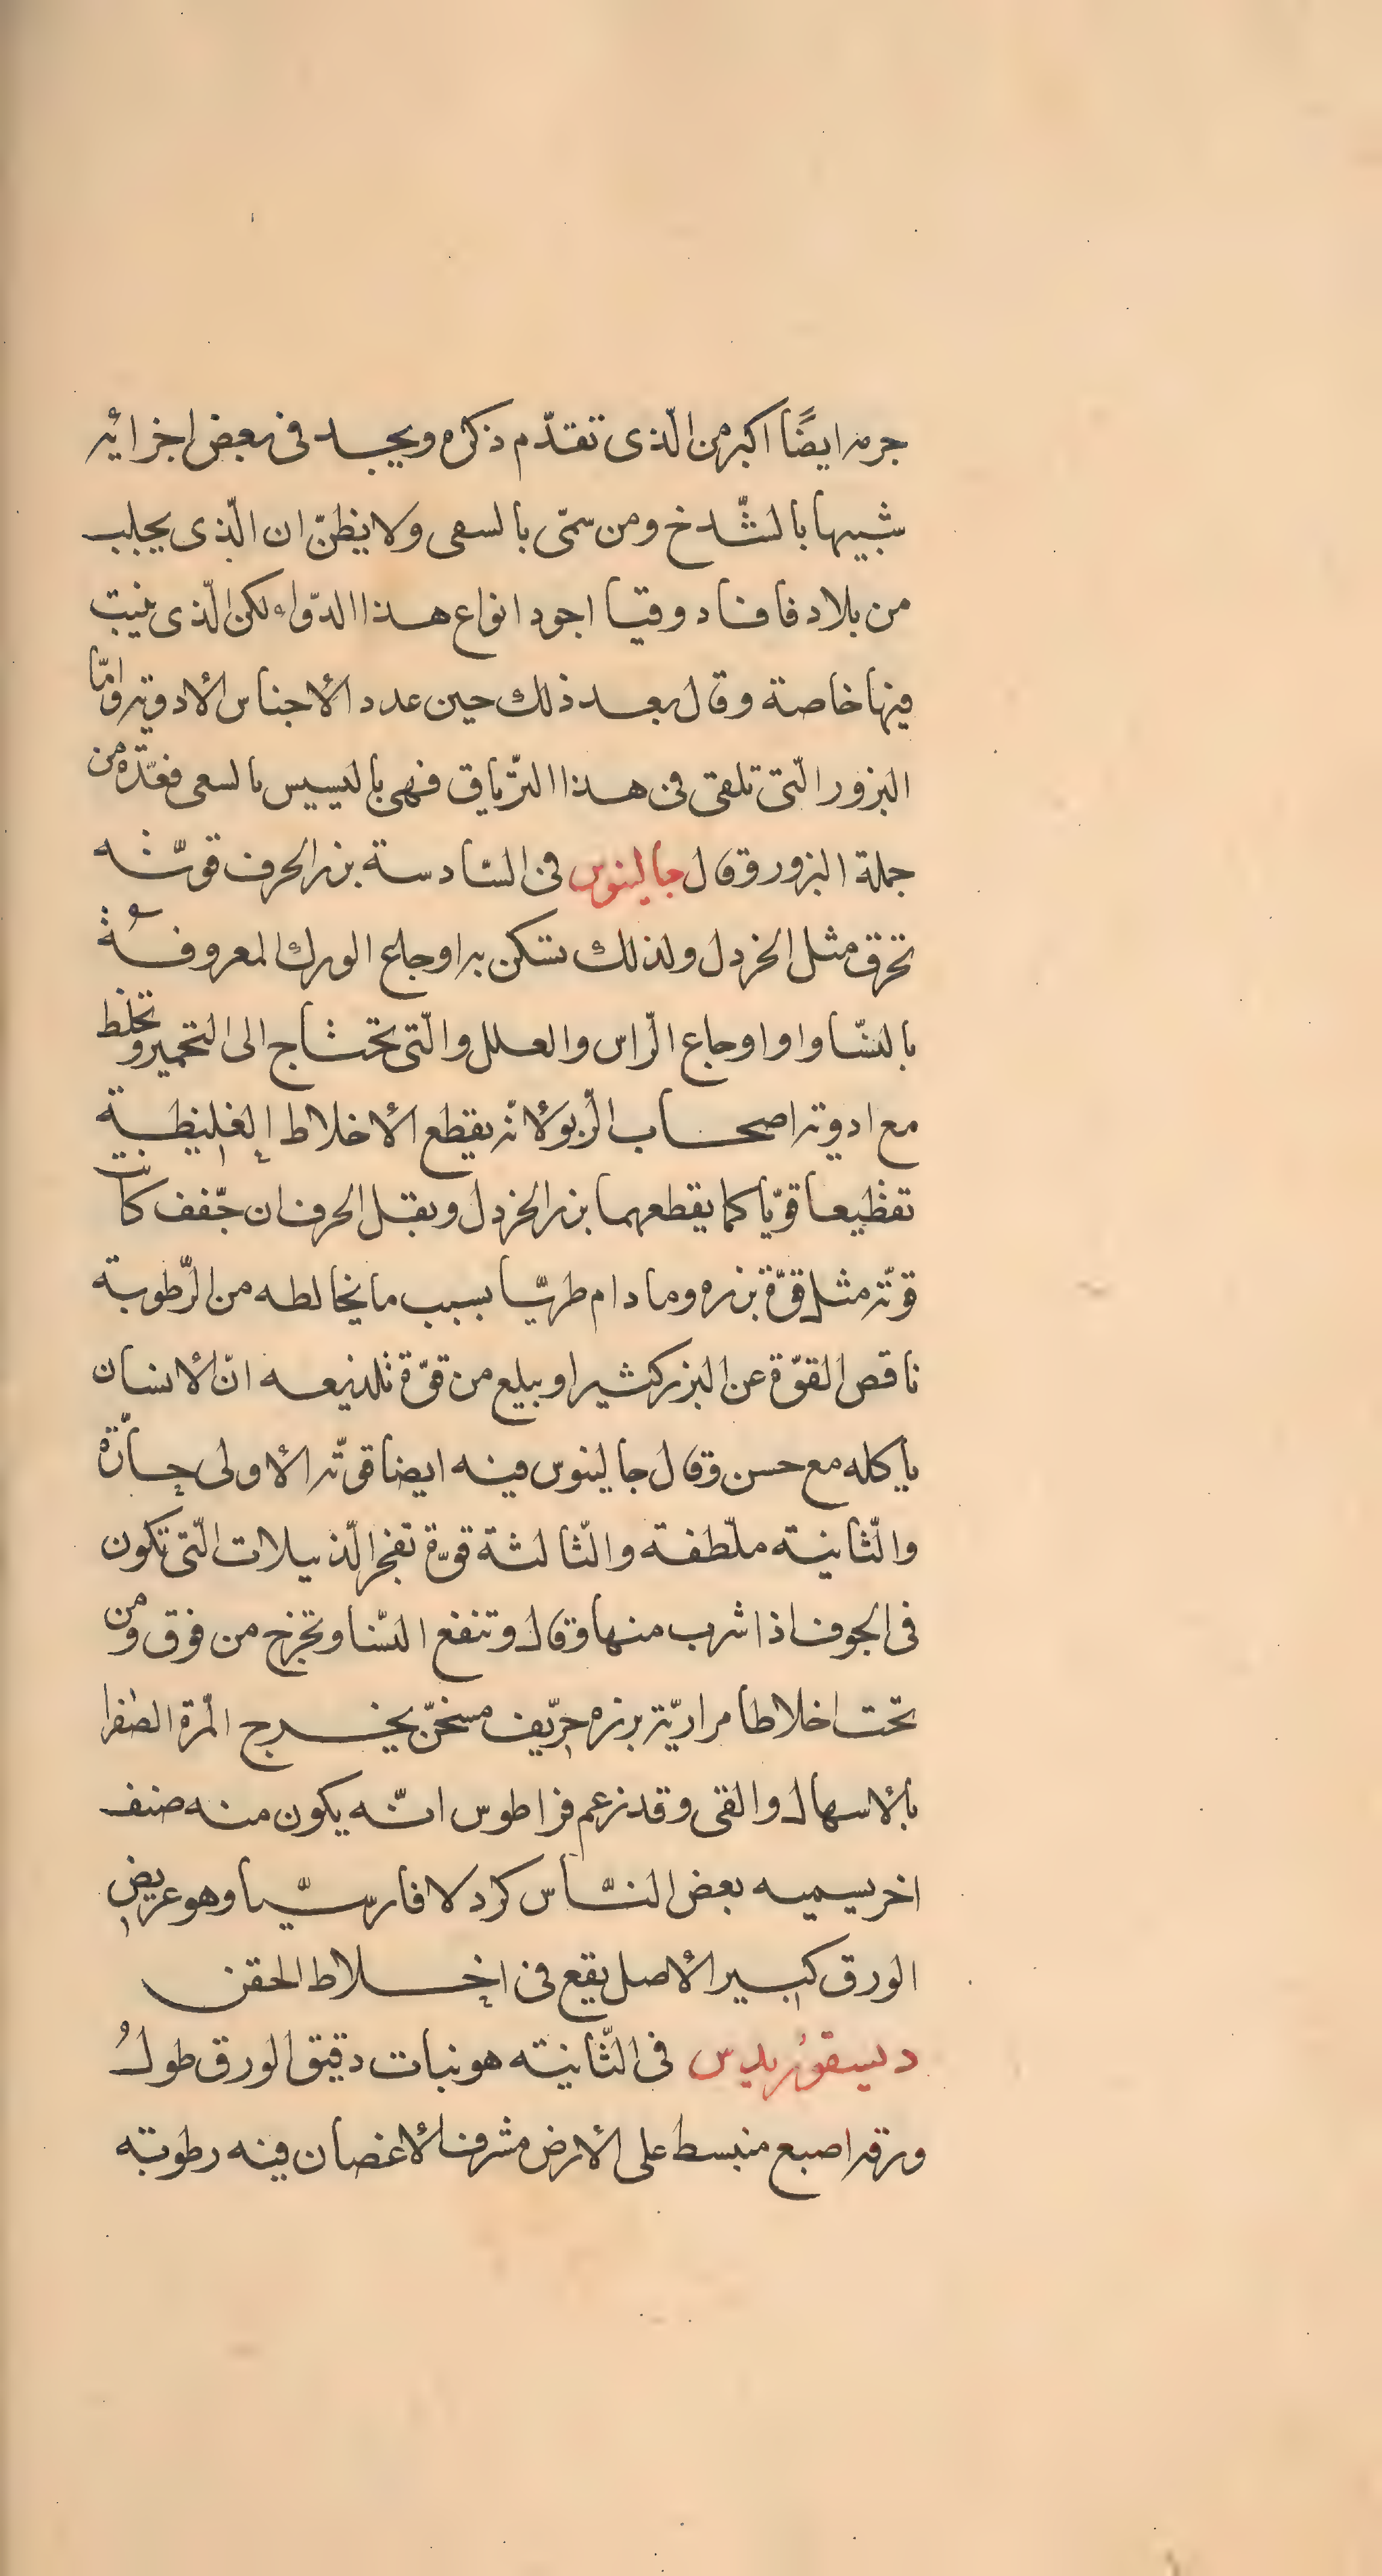 جرمه ايضًا اكبر من الّذى تقدّم ذكره ويجد فى بعض اجزائه
شبيها بالشّدخ ومن سمّى بالسعى ولا يظنّ ان الّذى يجلب
من بلاد قافادوقيا اجود انواع هذا الدّواء لكن الّذى ينبت
فيها خاصة وقال بعد ذلك حين عدد الأجناس الأدويه وامّا
البزور الّتى تلقى فى هذا التّرياق فهى باليسيس بالسعى فعدّه من
جملة البزور وقال جالينوس فى السّادسة بزر الحرف قوّته
تحرق مثل الخردل ولذلك تسكن به اوجاع الورك المعروفة
بالنسّا واوجاع الرّاس والعلل والّتى تحتاج الى التحمير وتخلط
مع ادويه اصحاب الرّبو لأنّه يقطع الأخلاط الغليظة
تقطيعا قويّا كما يقطعها بزر الخردل وبقل الحرف ان جّفف كانت
قوّته مثل قوّة بزره وما دام طريّا بسبب ما يخالطه من الرّطوبة
ناقص القوّة عن البزر كثيرا ويبلغ من قوّة تلذيعه انّ الأنسان
ياكله مع حسن وقال جالينوس فيه ايضا قوّته الأولى حارّة
والثّانية ملّطفة والثّالثة قويّة تفجر الّذبيلات الّتى تكون
فى الجوف اذا شرب منها وقال وتنفع النسّا وتخرج من فوق ومن
تحت اخلاطا مراريّة بزره حرّيف مسخنّ يخرج المّرة الصّفرا
بالأسهال والقى وقد زعم قراطوس انّه يكون منه صنف
اخر يسميه بعض النّاس كردلا فارسيّا وهو عريض
الورق كبير الأصل يقع فى اخلاط الحقن
ديسقوريدس فى الثّانيه هو نبات دقيق الورق طولُ
ورقه اصبع منبسط على الأرض مشرف الأغصان فيه رطوبة